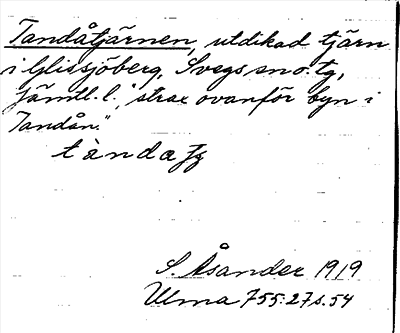 Tandåtjärnen, utdikad tjärn
i Glissjöberg, Svegs sn o. tg,
Jämtl. l.; "strax ovanför byn i
Tandån."
tàndatjr
S. Åsander 1919
Ulma 755:27 s. 54